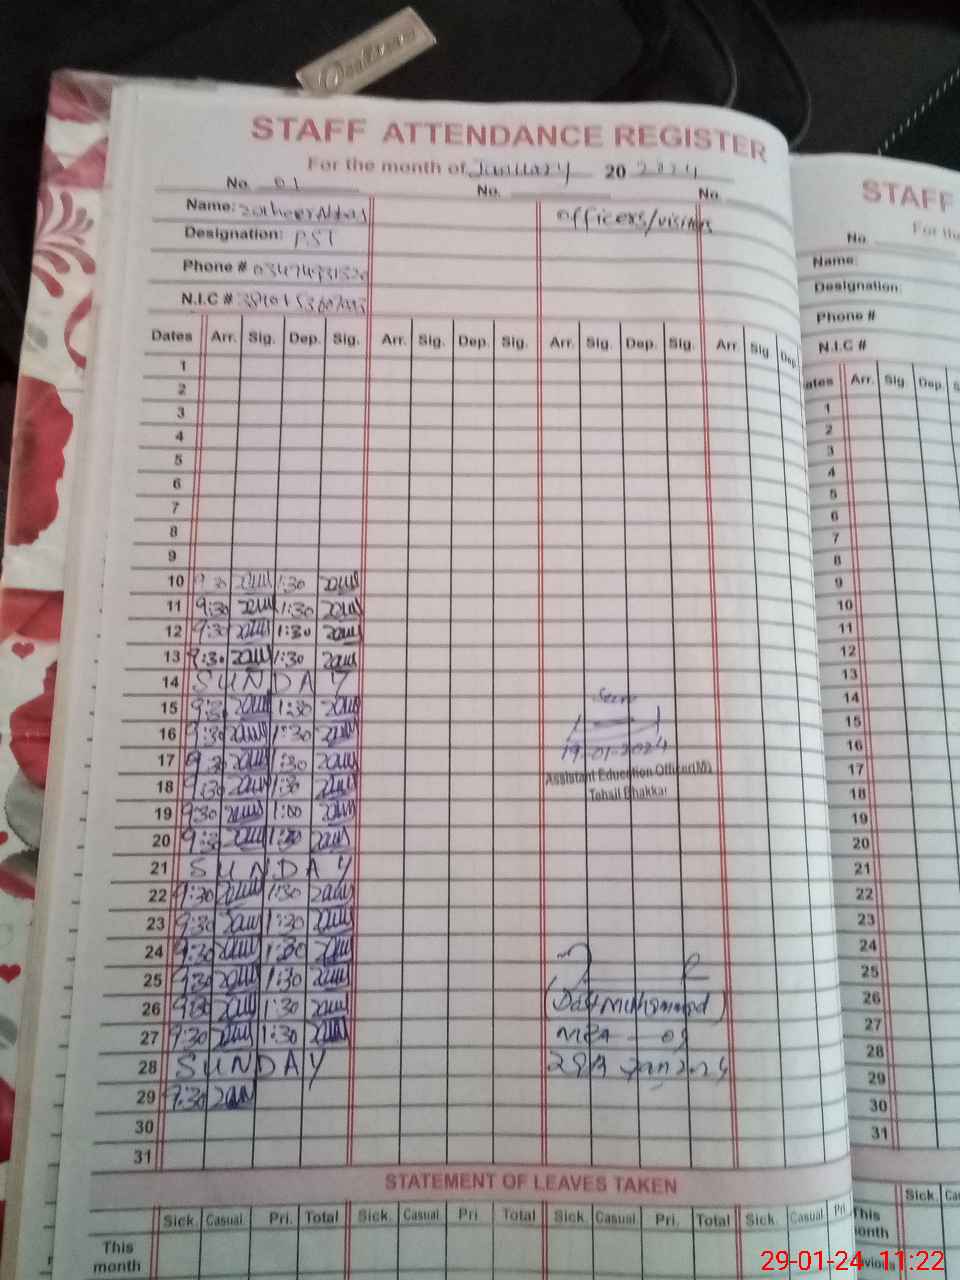 STAFF ATTENDANCE REGISTER
For the month of January 20 2024
No. 01 No. No.
Name: Zaheer Abbas officers/visitors
Designation: PST
Phone #
N.I.C #
Dates Arr. Sig. Dep. Sig. Arr. Sig. Dep. Sig. Arr. Sig. Dep. Sig. Arr. Sig. Dep.
1
2
3
4
5
6
7
8
9
10 9:30 1:30
11 9:30 1:30
12 9:30 1:30
13 9:30 1:30
14 SUNDAY
15 9:30 1:30
Seen
16 9:30 1:30
19-01-2024
17 9:30 1:30
Assistant Education Officer(M)
18 9:30 1:30
Tehsil Bhakkar
19 9:30 1:00
20 9:30 1:30
21 SUNDAY
22 9:30 1:30
23 9:30 1:30
24 9:30 1:30
25 9:30 1:30
26 9:30 1:30 (Dost Muhammad)
27 9:30 1:30 MEA 09
28 SUNDAY 29th Jan 2024
29 9:30
30
31
STATEMENT OF LEAVES TAKEN
Sick. Casual Pri. Total Sick. Casual Pri. Total Sick. Casual Pri. Total Sick. Casual Pri.
This
month
STAFF
For the
No.
Name:
Designation:
Phone #
N.I.C #
Arr. Sig. Dep.
1
2
3
4
5
6
7
8
9
10
11
12
13
14
15
16
17
18
19
20
21
22
23
24
25
26
27
28
29
30
31
Sick.
This
29-01-24 11:22